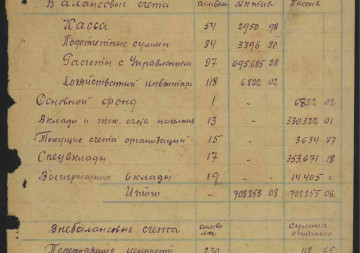 Балансовые счета символ Актив Пассив
Касса 54 2950 98
Подотчетные суммы 84 3396 80
Расчеты с Управлением 97 695685 28
Хозяйственный инвентарь 118 6822 02
Основной фонд 1 - 6822 02
Вклады и тек. счета населения 13 - 330322 01
Текущие счета организаций 15 - 3634 87
Спецвклады 17 - 353671 18
Выигрышные вклады 19 - 14.405 =
Итого - 708.855 08 708.855 08
Внебалансовые счета